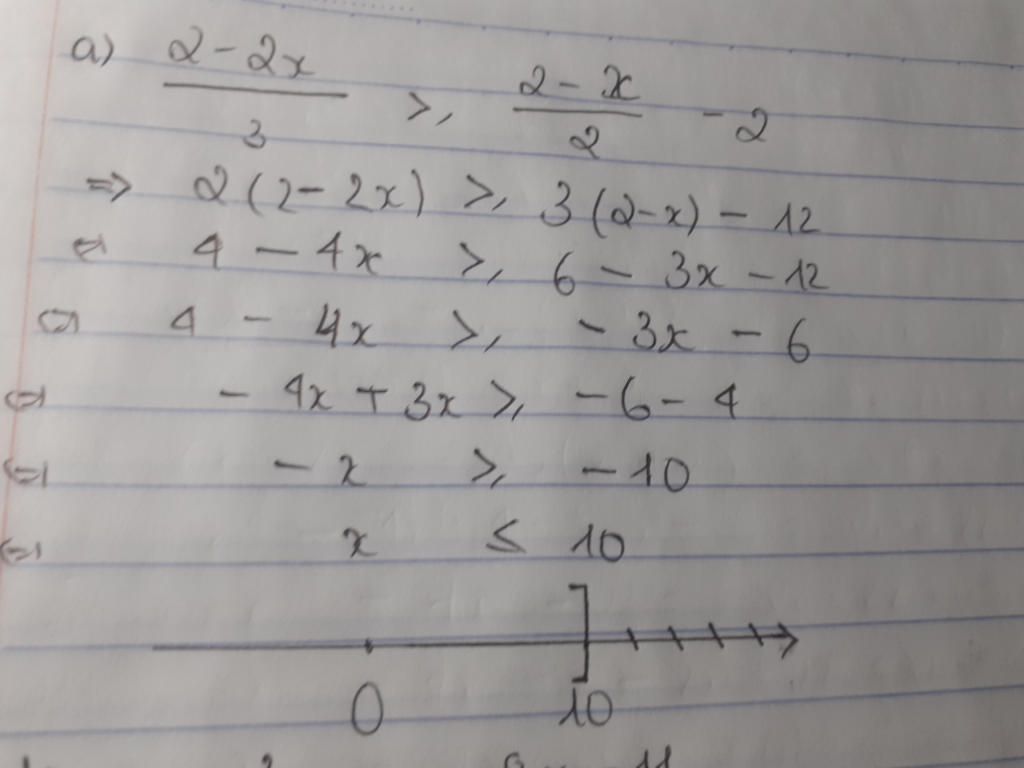 a) (2 - 2x)/3 ≥ (2 - x)/2 - 2
=> 2(2 - 2x) ≥ 3(2 - x) - 12
⇔ 4 - 4x ≥ 6 - 3x - 12
⇔ 4 - 4x ≥ - 3x - 6
⇔ - 4x + 3x ≥ - 6 - 4
⇔ - x ≥ - 10
⇔ x ≤ 10
0 10